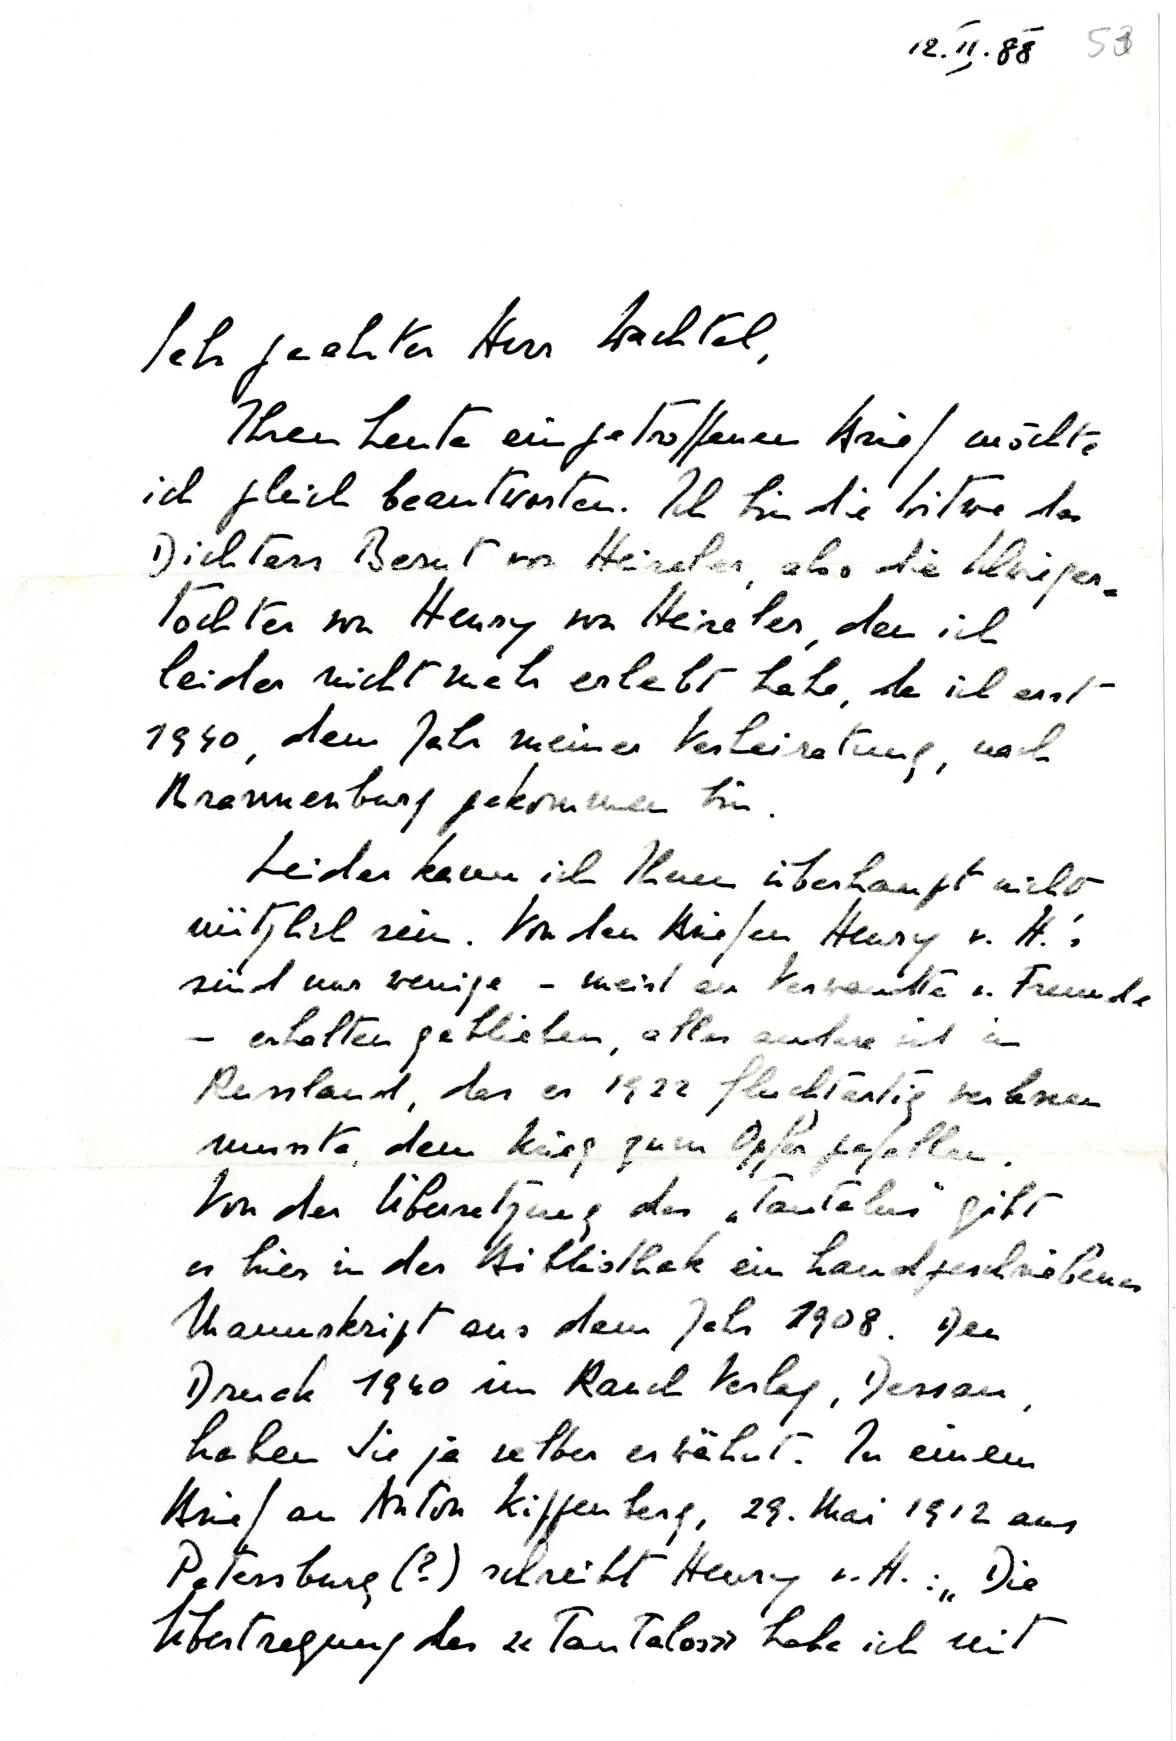 12.II.88 53
Sehr geehrter Herr Wachtel,
Ihren heute eingetroffenen Brief möchte
ich gleich beantworten. Ich bin die Witwe des
Dichters Bernt von Heiseler, also die Schwieger-
tochter von Henry von Heiseler, den ich
leider nicht mehr erlebt habe, da ich erst
1940, dem Jahr meiner Verheiratung, nach
Brannenburg gekommen bin.
Leider kann ich Ihnen überhaupt nicht
nützlich sein. Von den Briefen Henry v. H.'s
sind nur wenige – meist an Verwandte u. Freunde
– erhalten geblieben, alles andere ist in
Russland, das er 1922 fluchtartig verlassen
musste, dem Krieg zum Opfer gefallen.
Von der Übersetzung des „Tantalus" gibt
es hier in der Bibliothek ein handgeschriebenes
Manuskript aus dem Jahr 1908. Den
Druck 1940 im Rauch Verlag, Dessau,
haben Sie ja selber erwähnt. In einem
Brief an Anton Kippenberg, 29. Mai 1912 aus
Petersburg (?) schreibt Henry v. H.: „Die
Übertragung des «Tantalos» habe ich mit